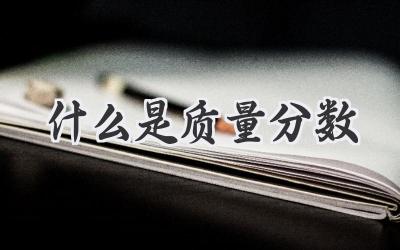 什么是质量分数